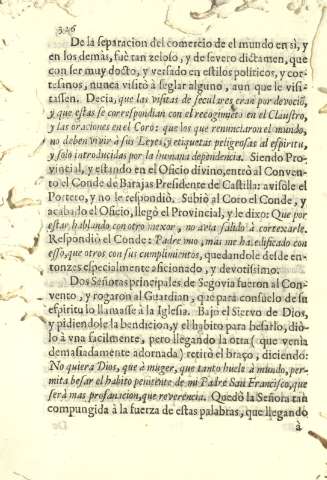 526
De la separacion del comercio de el mundo en si, y
en los demàs, fuè tan zeloso, y de severo dictamen, que
con ser muy docto, y versado en estilos politicos, y cor-
tesanos, nunca visitò à seglar alguno, aun que le visi-
tassen. Decia, que las visitas de seculares eran por devociõ,
y que estas se correspondian con el recogimiẽto en el Claustro,
y las oraciones en el Coro: que los que renunciaron el mundo,
no deben vivir à sus Leyes, y etiquetas peligrosas al espiritu,
y solo introducidas por la humana dependencia. Siendo Pro-
vincial, y estando en el Oficio divino, entrò al Conven-
to el Conde de Barajas Presidente de Castilla: avisòle el
Portero, y no le respondiò. Subiò al Coro el Conde, y
acabado el Oficio, llegò el Provincial, y le dixo: Que por
estar hablando con otro mayor, no avia salido à cortexarle.
Respondiò el Conde: Padre mio, mas me ha edificado con
esso, que otros con sus cumplimientos, quedandole desde en-
tonzes especialmente aficionado, y devotissimo.
Dos Señoras principales de Segovia fueron al Con-
vento, y rogaron al Guardian, que para consuelo de su
espiritu lo llamasse à la Iglesia. Baxò el Siervo de Dios,
y pidiendole la bendicion, y el habito para besarlo, diò-
lo à vna facilmente, pero llegando la otra (que venia
demasiadamente adornada) retirò el braço, diciendo:
No quiera Dios, que à muger, que tanto huele à mundo, per-
mita besar el habito penitente de mi Padre San Francisco, que
serà mas profanacion, que reverencia. Quedò la Señora tan
compungida à la fuerza de estas palabras, que llegando
à